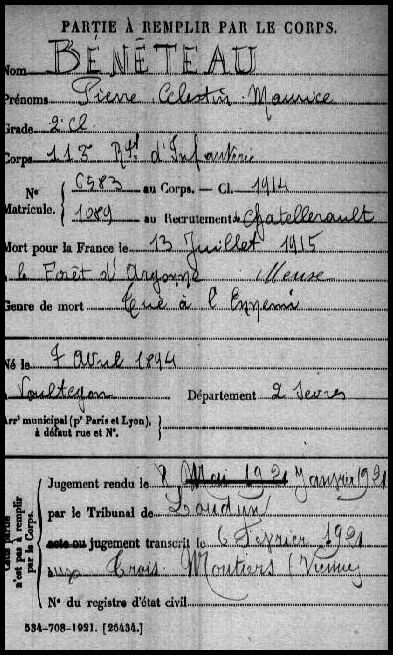 PARTIE À REMPLIR PAR LE CORPS.
Nom BENÉTEAU
Prénoms Pierre Celestin Maurice
Grade 2e Cl
Corps 113 Rgt d'Infanterie
N° Matricule. 6583 au Corps. — Cl. 1914
1089 au Recrutement de Chatellerault
Mort pour la France le 13 Juillet 1915
à le Forêt d'Argonne Meuse
Genre de mort Tué à l'Ennemi
Né le 7 Avril 1894
à Voultegon Département 2 Sevres
Arr' municipal (p' Paris et Lyon),
à défaut rue et N°.
Cette partie n'est pas à remplir par le Corps.
Jugement rendu le 8 Mai 1921 Janvier 1921
par le Tribunal de Loudun
acte ou jugement transcrit le 6 Fevrier 1921
aux Trois Moutiers (Vienne)
N° du registre d'état civil
534-708-1921. [26434.]